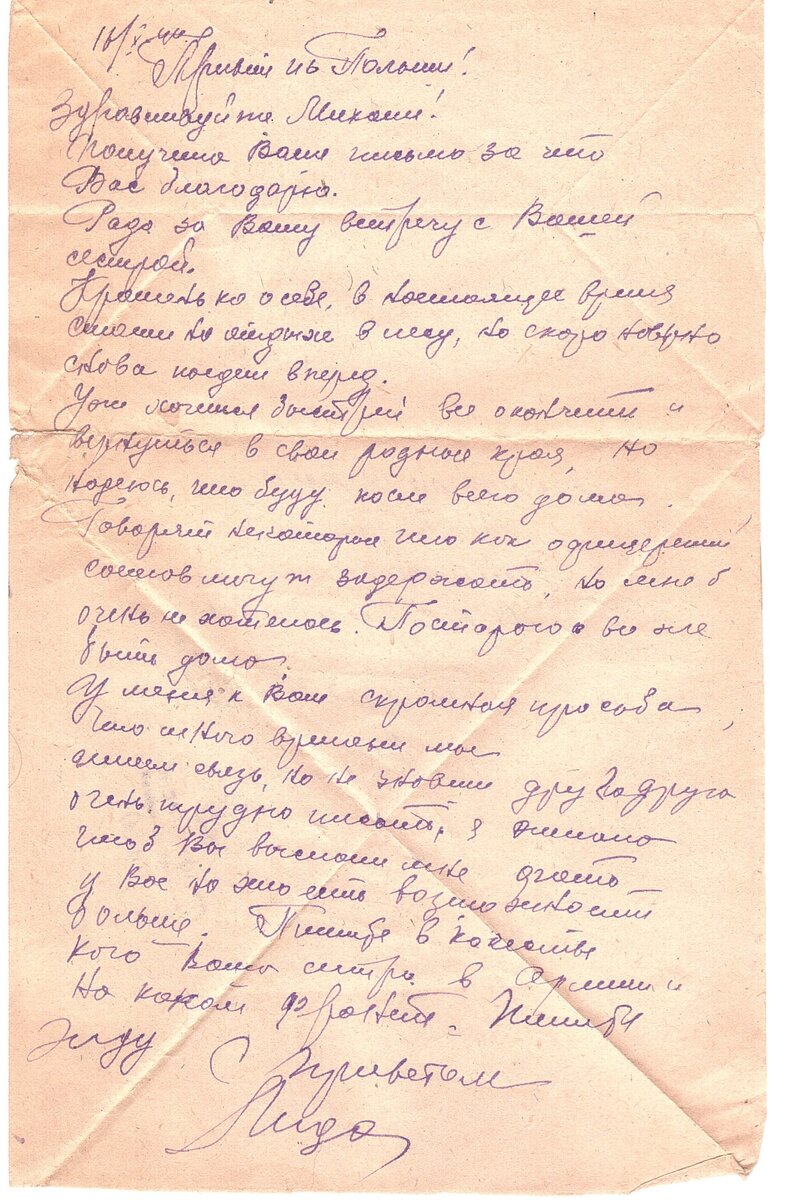 16/X-44
Привет из Польши!
Здравствуйте Михаил!
Получила Ваше письмо за что
Вас благодарю.
Рада за Вашу встречу с Вашей
сестрой.
Кратенько о себе, в настоящее время
стоим на отдыхе в лесу, но скоро наверно
снова поедем вперед.
Уже хочется быстрей все окончить и
вернуться в свои родные края, но
надеюсь, что буду после всего дома.
Говорят некоторые что как офицерский
состав могут задержать, но мне б
очень не хотелось. Постараюсь все же
быть дома.
У меня к Вам скромная просьба,
что много времени мы
имеем связь, но не знавши друг друга
очень трудно писать, я желала
чтоб Вы выслали мне фото
у Вас на это есть возможности
больше. Пишите в качестве
кого Ваша сестра в армии и
на каком фронте. Пишите
жду С приветом
Лида